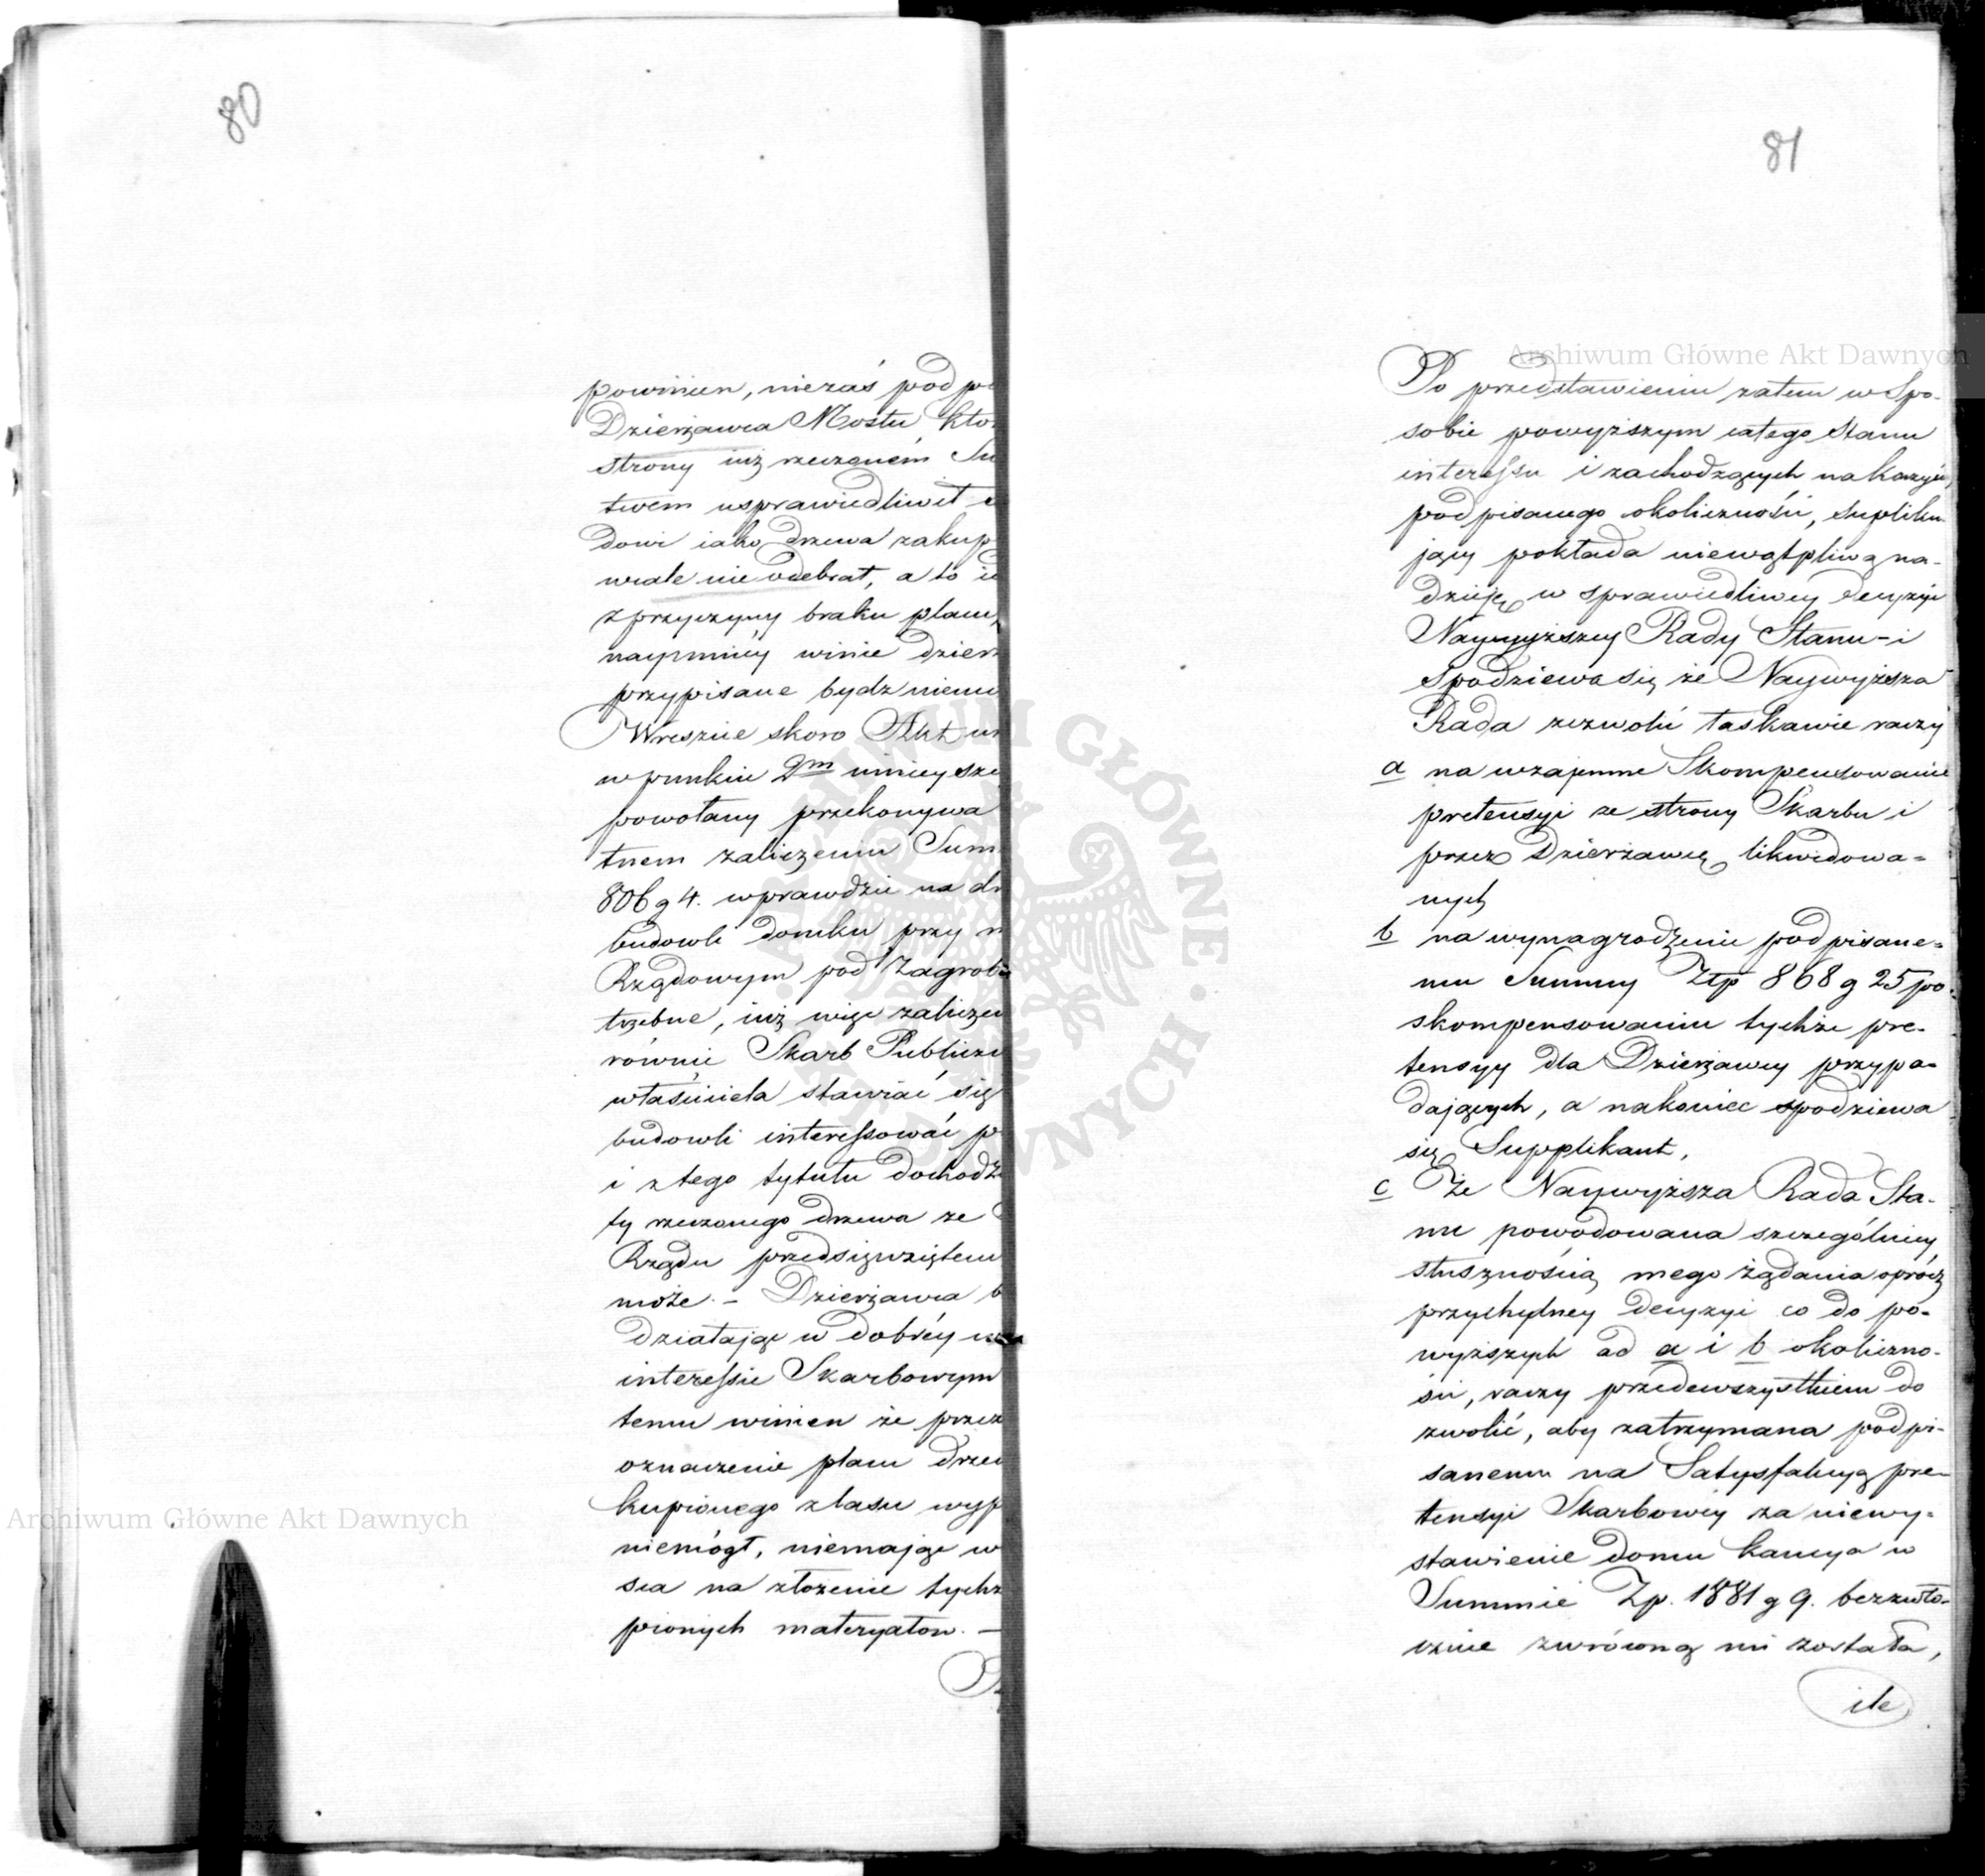 80
powinien, niezaś podpi
Dzierżawca Mostu kto
strony iuż rzeczonem Su
twem usprawiedliwił
dowi iako drzewa zakup
wcale nie odebrał, a to
z przyczyny braku placu,
naymniéy winie dzierż
przypisane bydz niemo
Wreszcie skoro Akt
w punkcie 2m ninieysze
powołany przekonywa
tnem zaliczeniu Sum
806 g 4. wprawdzie na dr
budowli domku przy m
Rządowym pod Zagrob
trzebne, iuż więc zaliczen
równie Skarb Publiczn
właściciela stawiać się
budowli interessować p
i z tego tytułu dochodz
ty rzeczonego drzewa ze
Rządu przedsięwziętem
może. – Dzierżawca b
działając w dobréy
interessie Skarbowym
temu winien że przez
oznaczenie placu drzew
kupionego z lasu wyp
niemógł, niemając w
sca na złożenie tychż
pionych materyałow. –
81
Archiwum Główne Akt Dawnych
Po przedstawieniu zatem w Spo-
sobie powyższym całego Stanu
interessu i zachodzących na korzyść
podpisanego okoliczności, supliku-
jący pokłada niewątpliwą na-
dzieję w sprawiedliwey decyzyi
Naywyższey Rady Stanu – i
Spodziewa się że Naywyższa
Rada zezwolić łaskawie raczy
a na wzajemne Skompensowanie
pretensyi ze strony Skarbu i
przez Dzierżawcę likwidowa=
nych
b na wynagrodzenie podpisane=
mu Summy Złp 868 g 25 po
skompensowaniu tychże pre-
tensyy dla Dzierżawcy przypa=
dających, a nakoniec spodziewa
się Supplikant,
c Że Naywyższa Rada Sta-
nu powodowana szczególniey
słusznością mego żądania oprócz
przychylney decyzyi co do po=
wyższych ad a i b okoliczno-
ści, raczy przedewszystkiem do
zwolić, aby zatrzymana podpi-
sanemu na Satysfakcyą pre-
tensyi Skarbowéy za niewy=
stawienie domu kaucya w
Summie Zp. 1881 g 9. bezzwło-
cznie zwróconą mi została,
ile
Archiwum Główne Akt Dawnych
ARCHIWUM GŁÓWNE AKT DAWNYCH